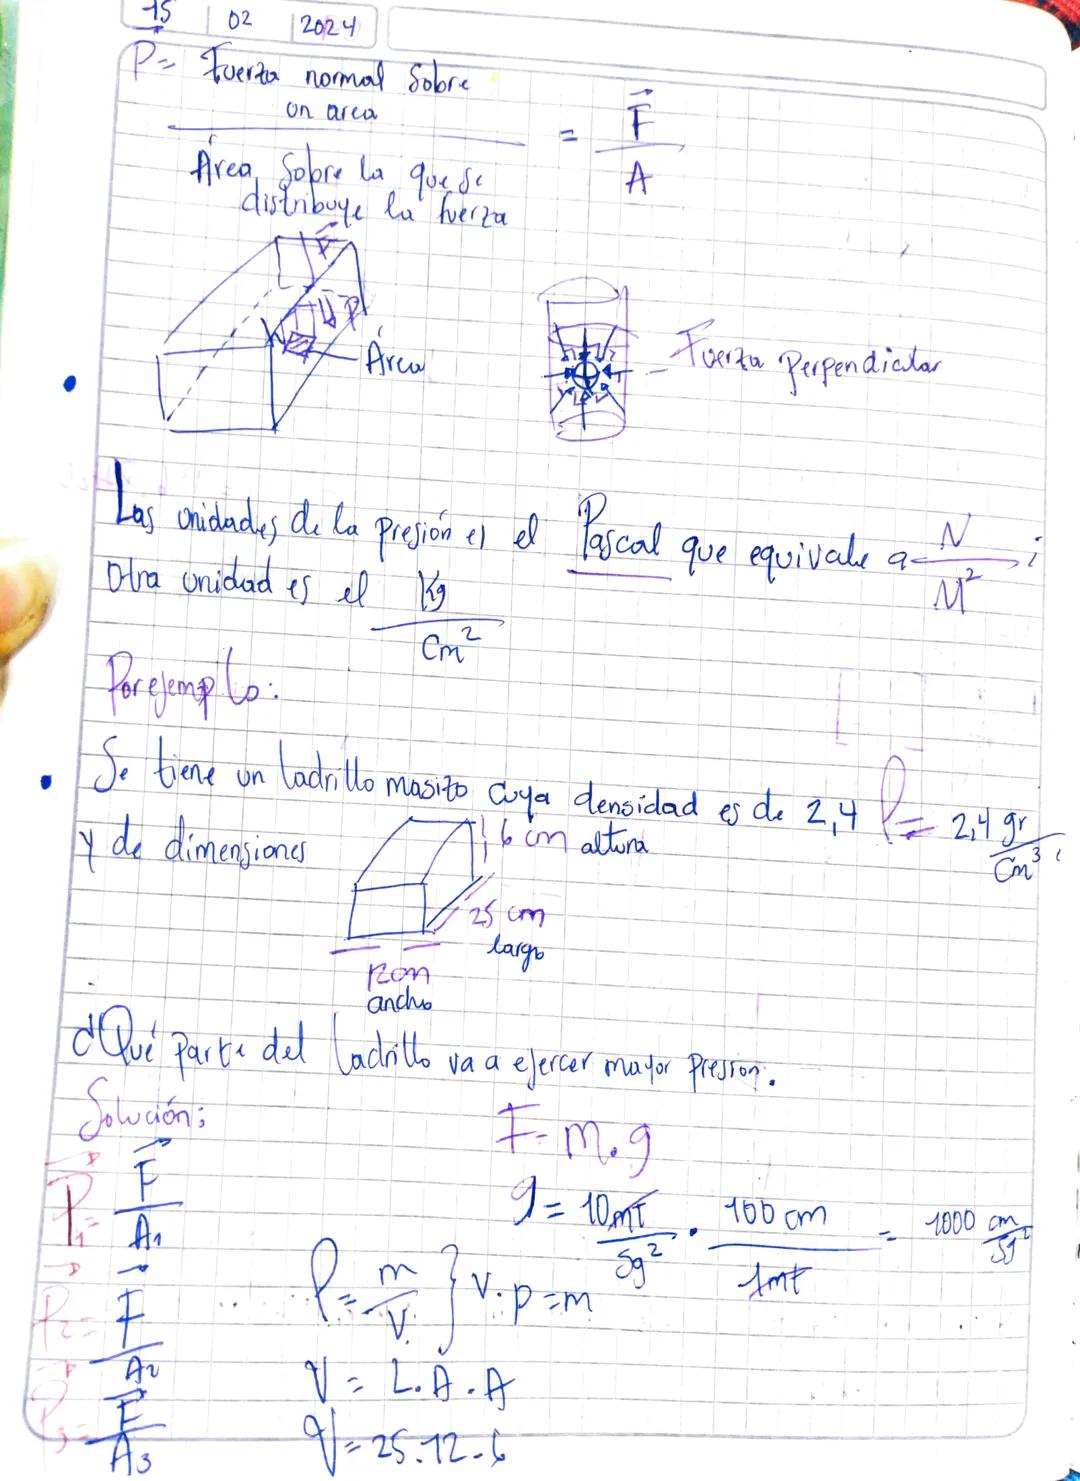 15 02 2024
P = Fuerza normal Sobre
un area
Área Sobre la que se
distribuye la fuerza
= F / A
F
P
Área
Fuerza perpendicular
Las unidades de la presión es el Pascal que equivale a N / M² ;
Otra unidad es el Kg / Cm²
Por ejemplo:
Se tiene un ladrillo masito cuya densidad es de 2,4 ρ = 2,4 gr / Cm³
y de dimensiones
6 cm altura
25 cm
largo
12cm
ancho
¿Qué parte del ladrillo va a ejercer mayor presion.
Solución;
F = m.g
P1 = F / A1
g = 10 mt / Sg² . 100 cm / 1mt = 1000 cm / Sg²
P2 = F / A2
ρ = m / V } V. ρ = m
P3 = F / A3
V = L.A.A
V = 25.12.6